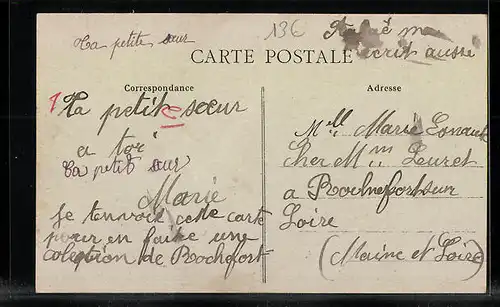 Ta petite sœur
136
m'a
écrit aussi
CARTE POSTALE
Correspondance
Adresse
1 Ta petite sœur
a toi
ta petit sœur
Marie
Je tenvoit cette carte
pour en faite une
colection de Rochefort
Mell Marie Esnault
Cher Mm Leuret
a Rochefort sur
Loire
(Maine et Loire)